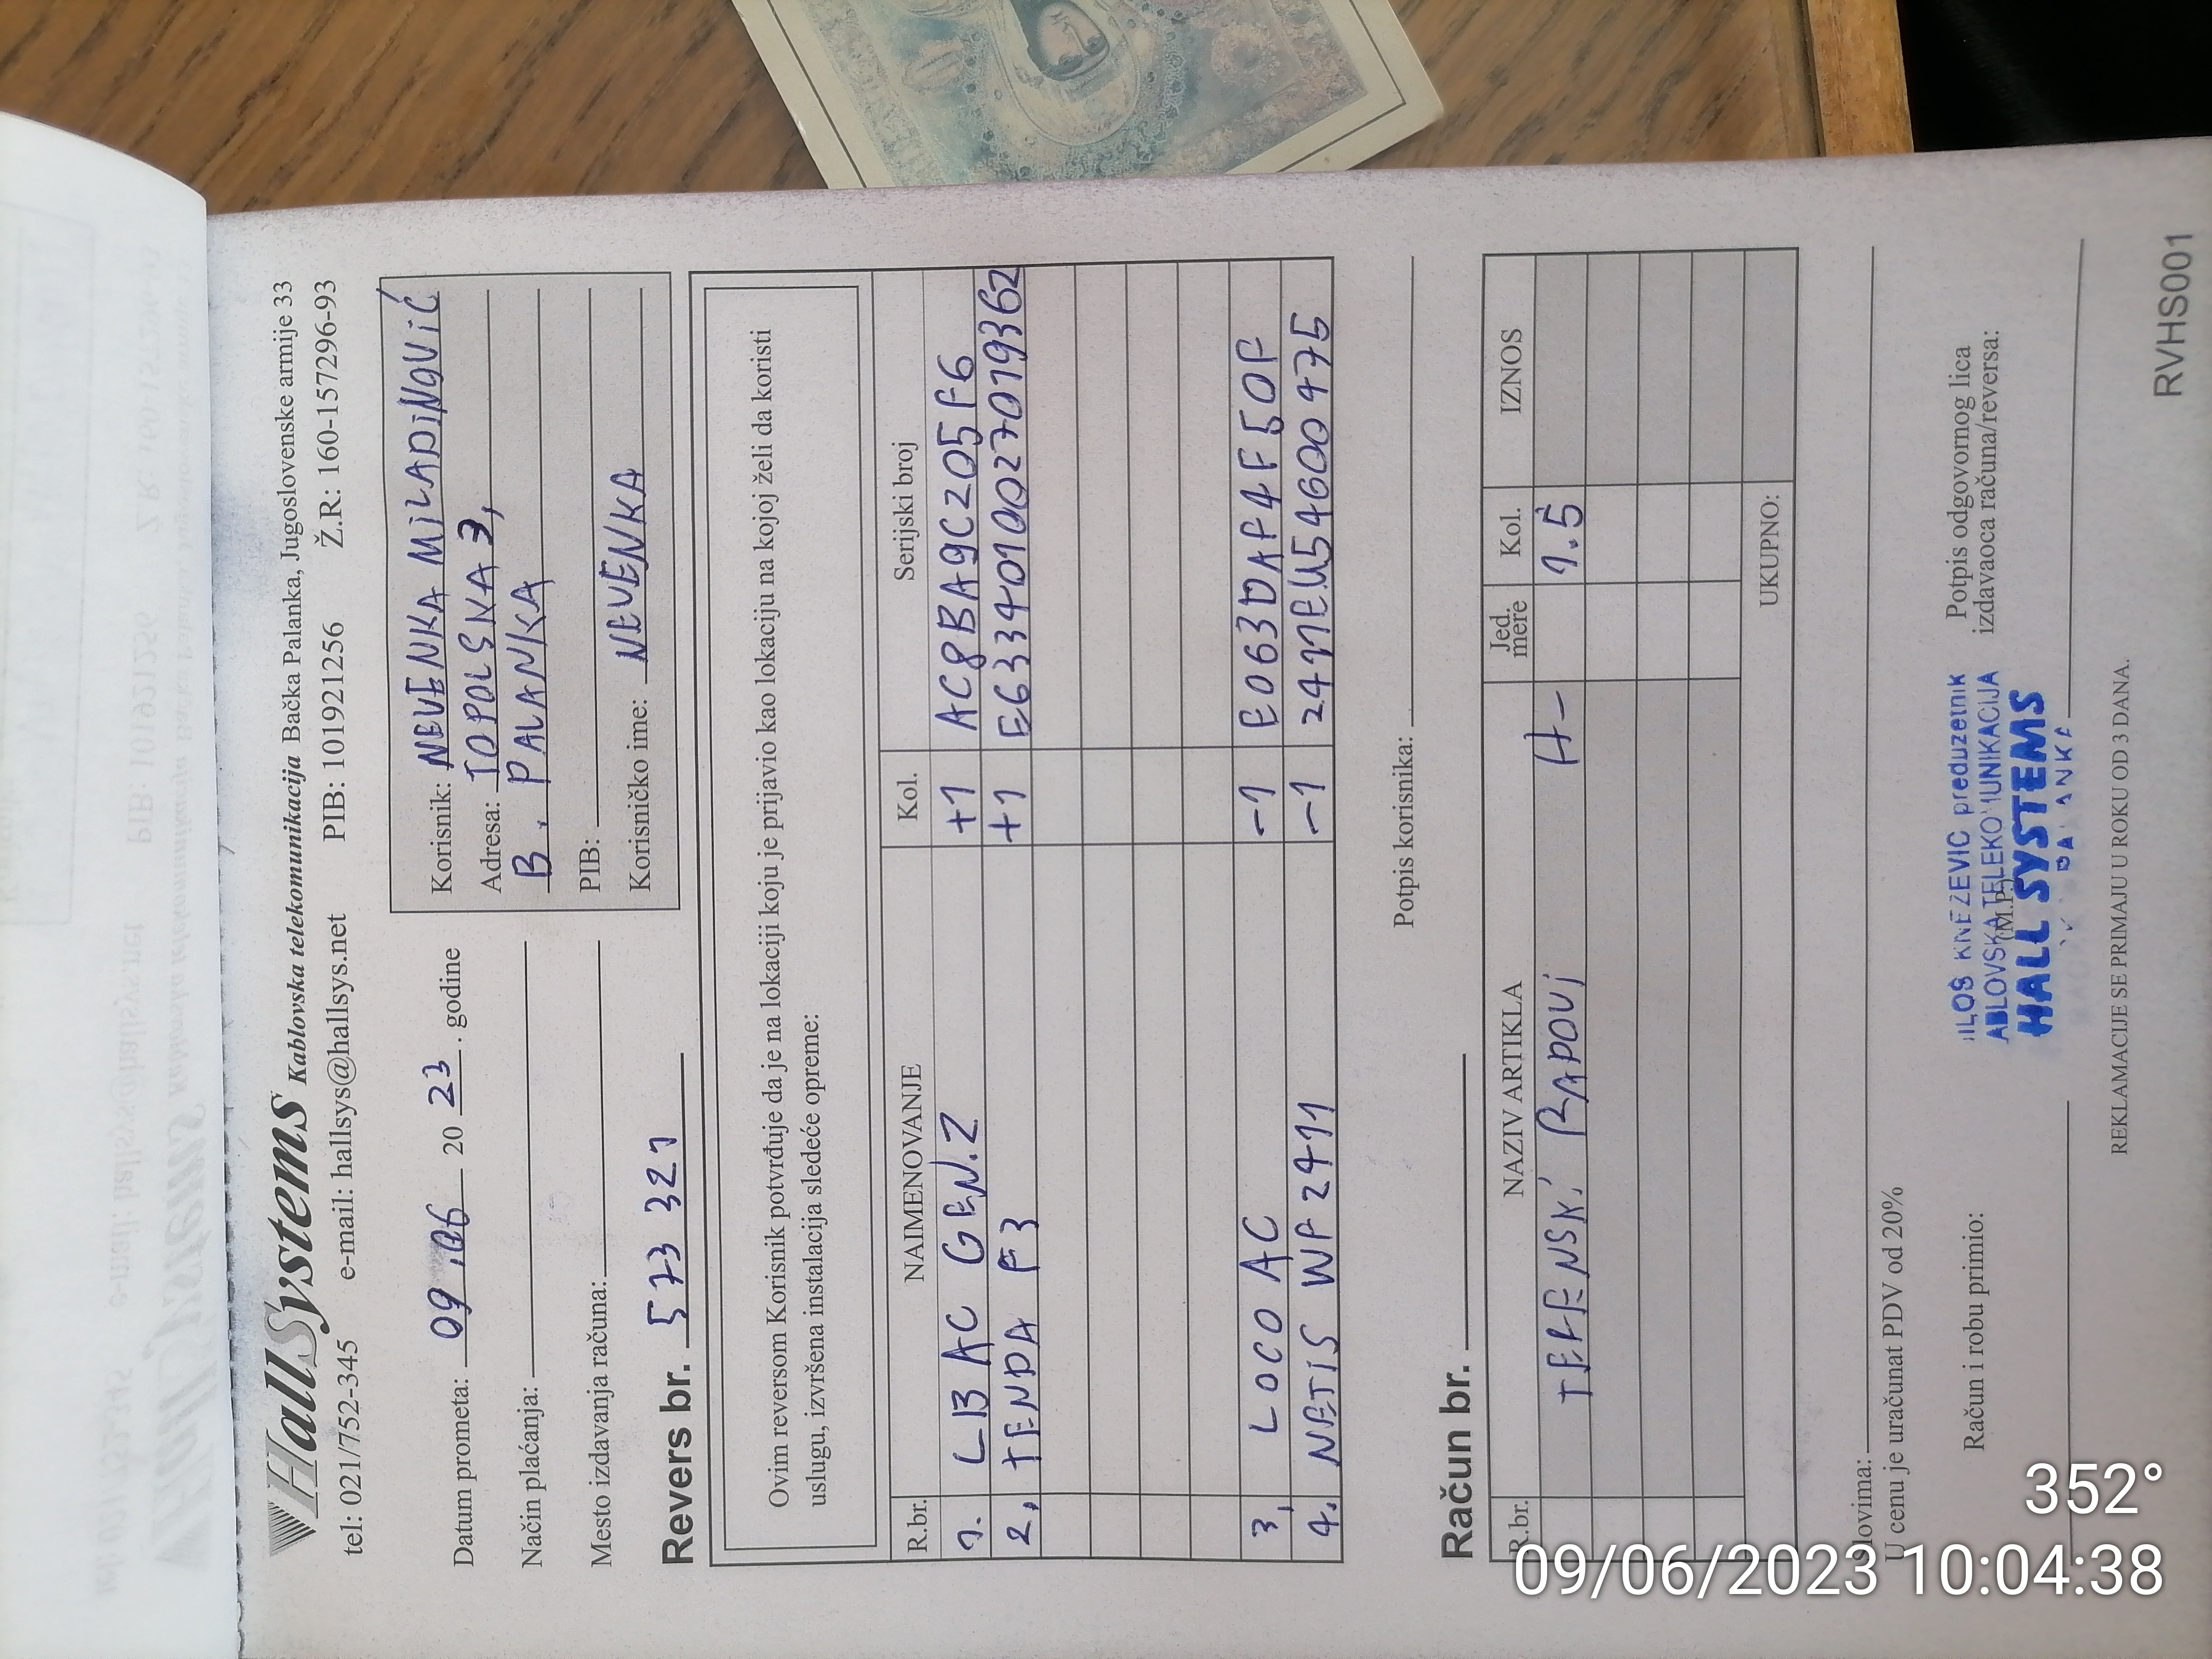 HallSystems Kablovska telekomunikacija Bačka Palanka, Jugoslovenske armije 33
tel: 021/752-345 e-mail: hallsys@hallsys.net PIB: 101921256 Ž.R: 160-157296-93
Datum prometa: 09.06 2023. godine
Način plaćanja:
Mesto izdavanja računa:
Korisnik: NEVENKA MILADINOVIĆ
Adresa: TOPOLSKA 3,
B. PALANKA
PIB:
Korisničko ime: NEVENKA
Revers br. 573 321
Ovim reversom Korisnik potvrđuje da je na lokaciji koju je prijavio kao lokaciju na kojoj želi da koristi
uslugu, izvršena instalacija sledeće opreme:
R.br. NAIMENOVANJE Kol. Serijski broj
1. LB AC GEN.2 +1 AC8BA9C205F6
2. TENDA F3 +1 E6334010027019362
3, LOCO AC -1 E063DAF4F50F
4. NETIS WF2411 -1
Potpis korisnika:
Račun br.
R.br. NAZIV ARTIKLA Jed. mere Kol. IZNOS
TERENSKI RADOVI H- 1.5
UKUPNO:
Slovima:
U cenu je uračunat PDV od 20%
Račun i robu primio:
(M.P.)
ILOŠ KNEZEVIC preduzetnik
ABLOVSKA TELEKOMUNIKACIJA
HALL SYSTEMS
Potpis odgovornog lica
izdavaoca računa/reversa:
REKLAMACIJE SE PRIMAJU U ROKU OD 3 DANA.
RVHS001
352°
09/06/2023 10:04:38